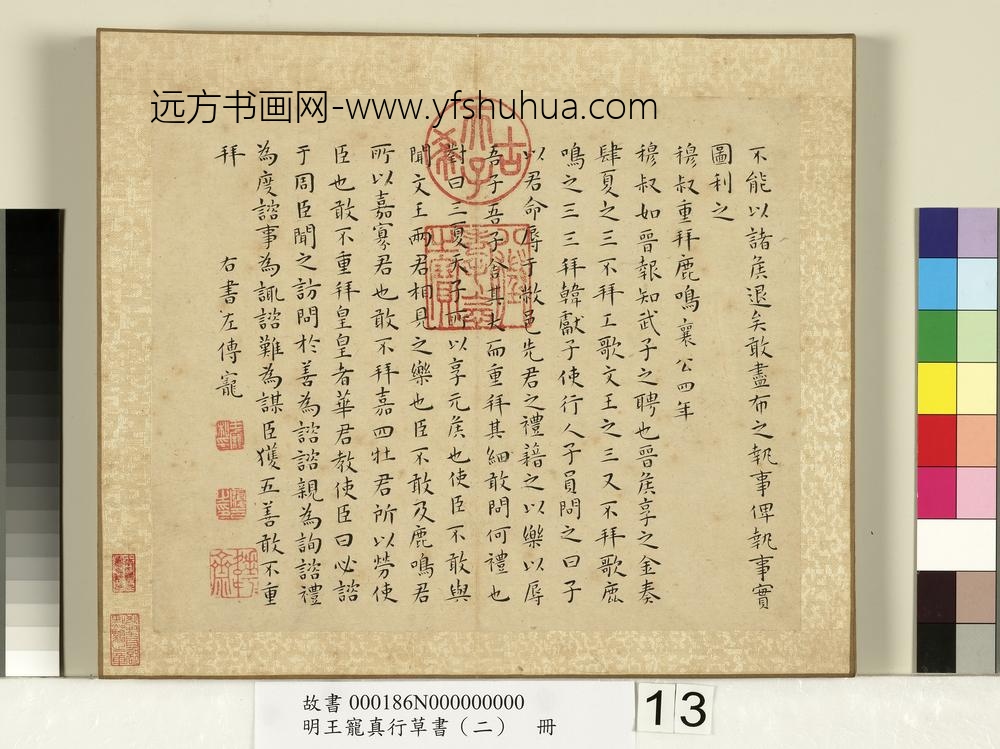 远方书画网-www.yfshuhua.com
不能以諸侯退矣敢盡布之執事俾執事實
圖利之
穆叔重拜鹿鳴襄公四年
穆叔如晉報知武子之聘也晉侯享之金奏
肆夏之三不拜工歌文王之三又不拜歌鹿
鳴之三三拜韓獻子使行人子員問之曰子
以君命辱于敝邑先君之禮藉之以樂以辱
吾子吾子舍其大而重拜其細敢問何禮也
對曰三夏天子所以享元侯也使臣不敢與
聞文王兩君相見之樂也臣不敢及鹿鳴君
所以嘉寡君也敢不拜嘉四牡君所以勞使
臣也敢不重拜皇皇者華君教使臣曰必諮
于周臣聞之訪問於善為諮諮親為詢諮禮
為度諮事為諏諮難為謀臣獲五善敢不重
拜
右書左傳寵
古希天子
八徵耄念之寶
故書000186N000000000
明王寵真行草書（二） 冊
13